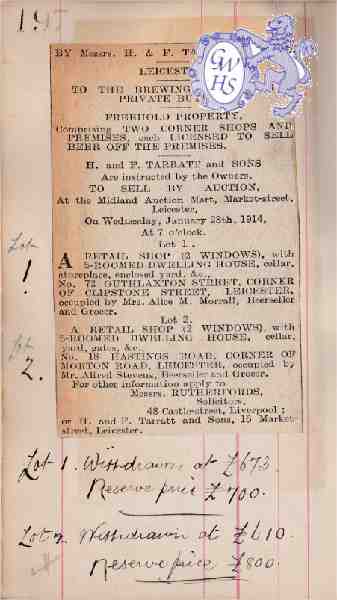 BY Messrs. H. & F. TA
LEICEST
TO THE BREWING
PRIVATE BU
GWHS
FREEHOLD PROPERTY,
Comprising TWO CORNER SHOPS AND
PREMISES, each LICENSED TO SELL
BEER OFF THE PREMISES.
H. and F. TARRATT and SONS
Are instructed by the Owners,
TO SELL BY AUCTION,
At the Midland Auction Mart, Market-street,
Leicester,
On Wednesday, January 28th, 1914,
At 7 o'clock.
Lot 1.
Lot
1
A RETAIL SHOP (2 WINDOWS), with
5-ROOMED DWELLING HOUSE, cellar,
storeplace, enclosed yard, &c.,
No. 72 OUTHLAXTON STREET, CORNER
OF CLIPSTONE STREET, LEICESTER,
occupied by Mrs. Alice M. Morrall, Beerseller
and Grocer.
Lot 2.
Lot
2.
A RETAIL SHOP (2 WINDOWS), with
5-ROOMED DWELLING HOUSE, cellar,
yard, gates, &c.
No. 18 HASTINGS ROAD, CORNER OF
MORTON ROAD, LEICESTER, occupied by
Mr. Alfred Stevens, Beerseller and Grocer.
For other information apply to
Messrs. RUTHERFORDS,
Solicitors,
48 Castle-street, Liverpool ;
or H. and F. Tarratt and Sons, 15 Market-
street, Leicester.
Lot 1. Withdrawn at £675.
Reserve price £700.
Lot 2 Withdrawn at £610
Reserve price £800.